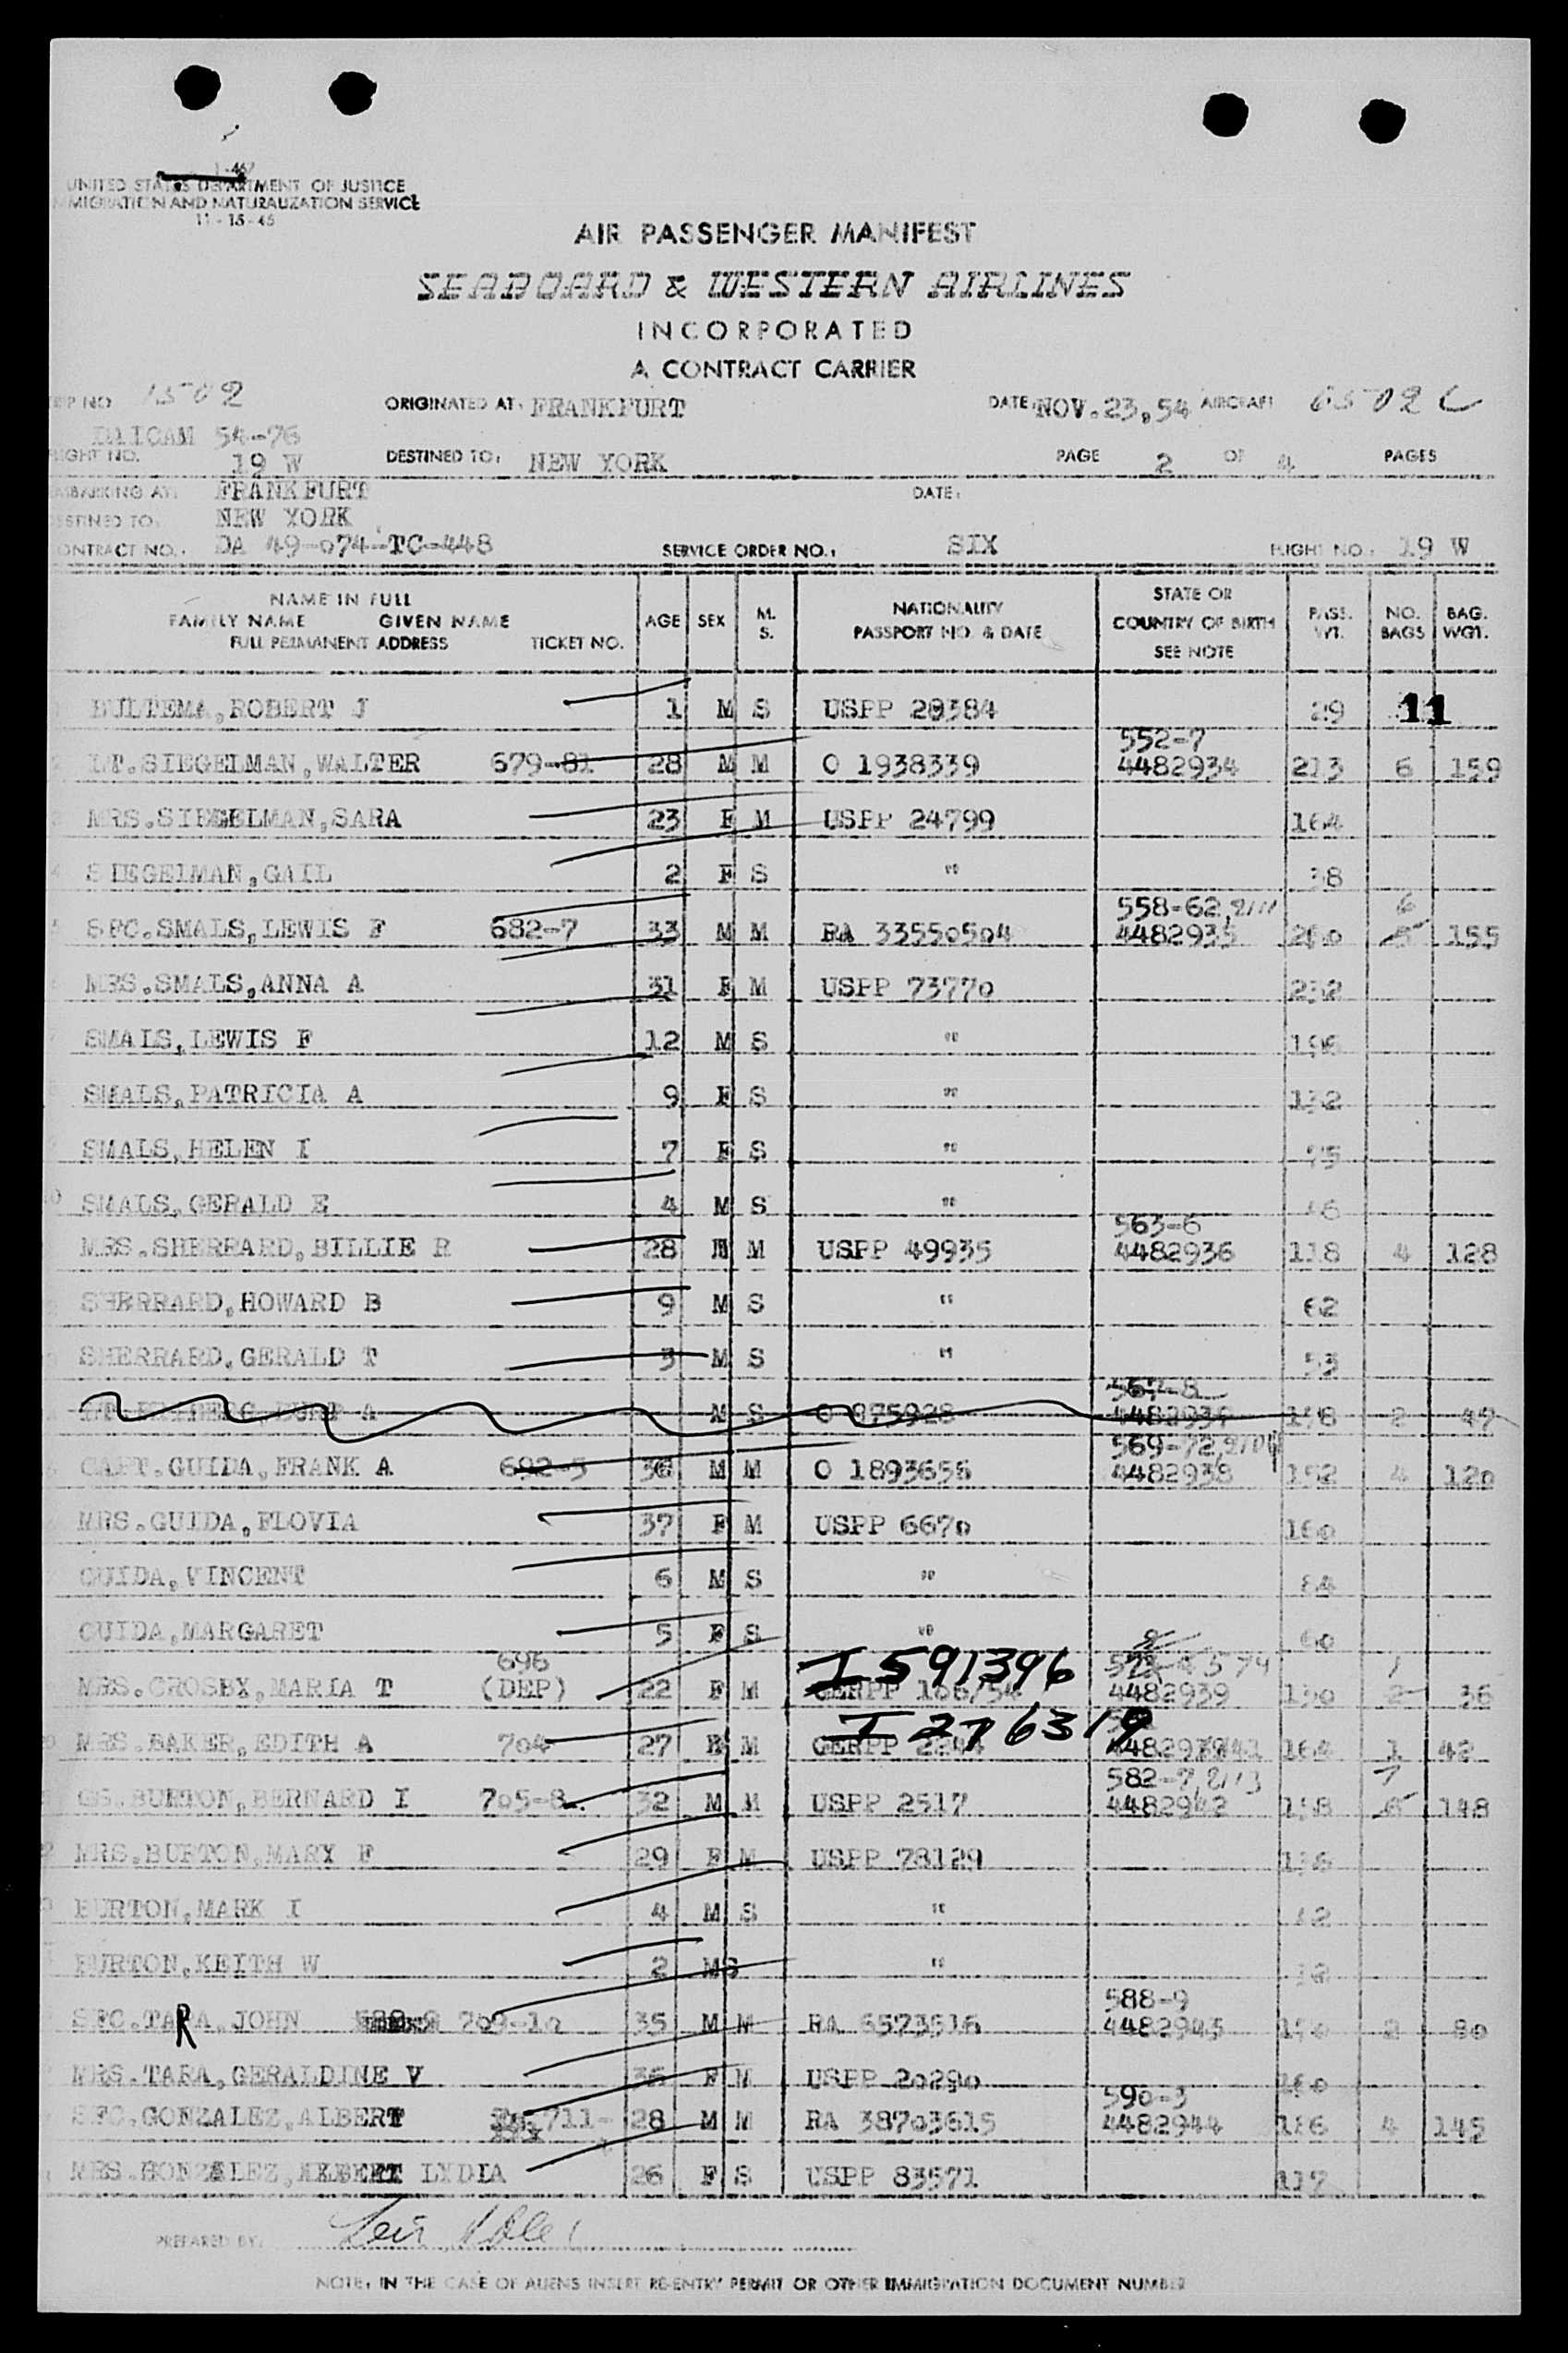 UNITED STATES DEPARTMENT OF JUSTICE
MIGRATION AND NATURALIZATION SERVICE
11-15-45
AIR PASSENGER MANIFEST
SEABOARD & WESTERN AIRLINES
INCORPORATED
A CONTRACT CARRIER
NO 1502 ORIGINATED AT: FRANKFURT DATE: NOV. 23, 54 AIRCRAFT 6502C
54-76
NO. 19 W DESTINED TO: NEW YORK PAGE 2 OF 4 PAGES
BARKING AT: FRANKFURT DATE:
STINED TO: NEW YORK
ONTRACT NO.: DA 49-074-TC-448 SERVICE ORDER NO.: SIX FLIGHT NO.: 19 W
NAME IN FULL
FAMILY NAME GIVEN NAME
FULL PERMANENT ADDRESS TICKET NO.
AGE SEX M. S.
NATIONALITY
PASSPORT NO. & DATE
STATE OR
COUNTRY OF BIRTH
SEE NOTE
PASS. WT. NO. BAGS BAG. WGT.
BULTEMA, ROBERT J 1 M S USPP 28384 29 11
552-7
LT. SIEGELMAN, WALTER 679-81 28 M M O 1938339 4482934 213 6 159
MRS. SIEGELMAN, SARA 23 F M USPP 24799 164
SIEGELMAN, GAIL 2 F S " 38
558-62 6
SFC. SMALS, LEWIS F 682-7 33 M M RA 33550504 4482935 155
MRS. SMALS, ANNA A 31 F M USPP 73770 232
SMALS, LEWIS F 12 M S " 196
SMALS, PATRICIA A 9 F S " 132
SMALS, HELEN I 7 F S " 75
SMALS, GERALD E 4 M S " 46
563-6
MRS. SHERRARD, BILLIE R 28 F M USPP 49935 4482936 118 4 128
SHERRARD, HOWARD B 9 M S " 62
SHERRARD, GERALD T 3 M S " 53
567-8
A M S O 975928 2
569-72
CAPT. GUIDA, FRANK A 692-5 36 M M O 1893656 4482938 152 4 120
MRS. GUIDA, FLOVIA 37 F M USPP 6670 160
GUIDA, VINCENT 6 M S " 84
GUIDA, MARGARET 5 F S " 60
696 I 591396 574 1
MRS. CROSBY, MARIA T (DEP) 22 F M GERPP 106/54 4482939 130 2 36
I 276319
MRS. BAKER, EDITH A 704 27 F M GERPP 2244 164 1 42
582-7, 2113 7
GS. BURTON, BERNARD I 705-8 32 M M USPP 2517 4482942 158 6 148
MRS. BURTON, MARY F 29 F M USPP 78129 136
BURTON, MARK I 4 M S " 42
BURTON, KEITH W 2 M S " 32
588-9
SFC. TARA, JOHN 709-10 35 M M RA 6573516 4482943 170 2 80
MRS. TARA, GERALDINE V 36 F M USPP 20290
590-3
SFC. GONZALEZ, ALBERT 711- 28 M M RA 38703615 4482944 186 4 145
MRS. GONZALEZ, LYDIA 26 F S USPP 83571 117
PREPARED BY:
NOTE: IN THE CASE OF ALIENS INSERT RE-ENTRY PERMIT OR OTHER IMMIGRATION DOCUMENT NUMBER